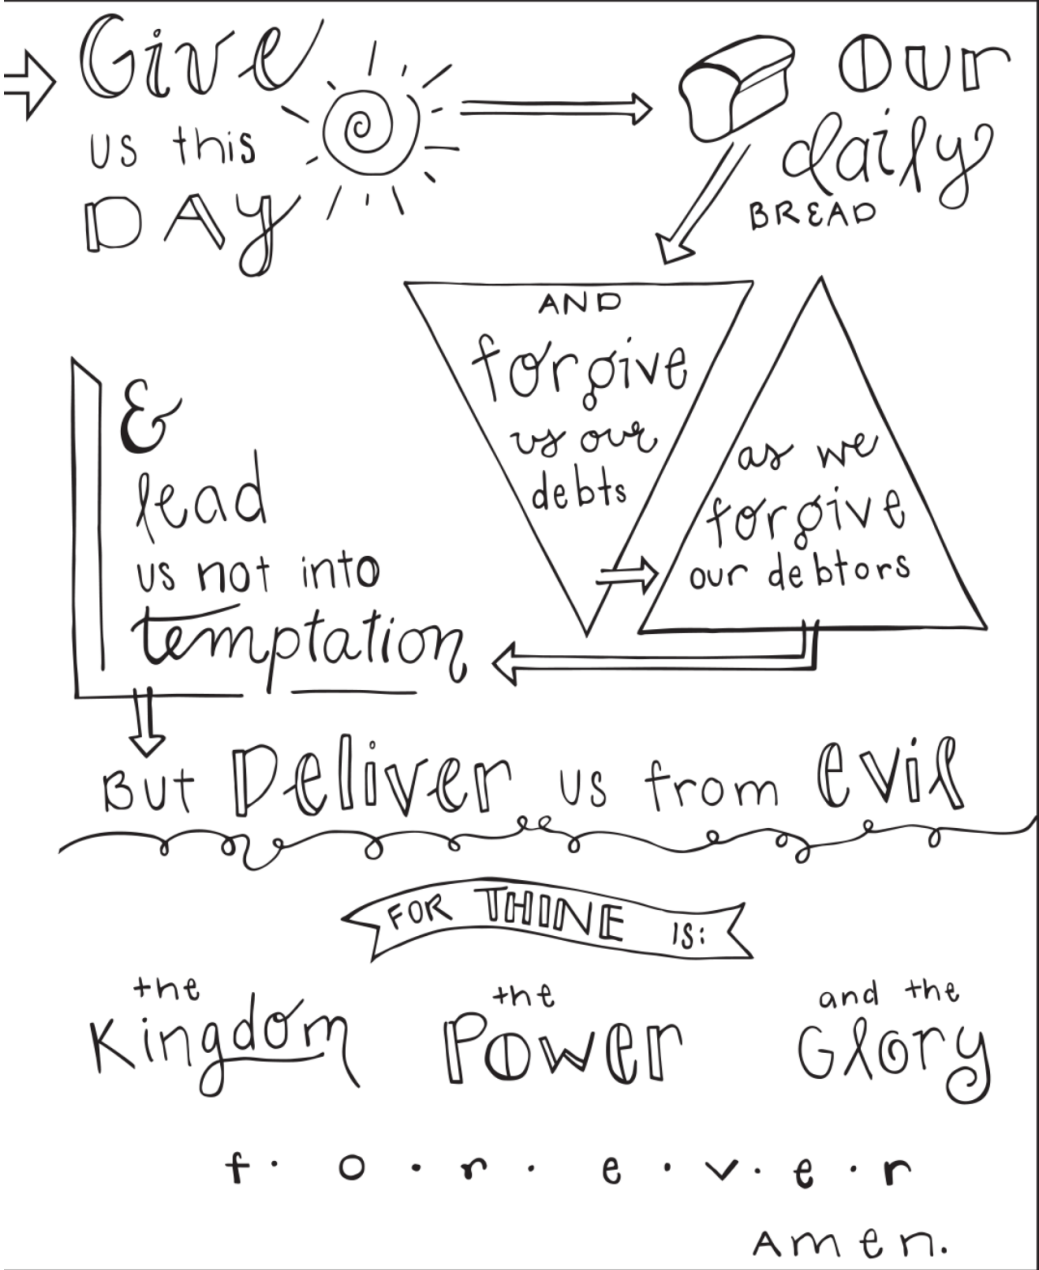 Give
us this
DAY
our
daily
BREAD
AND
forgive
us our
debts
as we
forgive
our debtors
&
lead
us not into
temptation
But Deliver us from evil
FOR THINE IS:
the
Kingdom
the
Power
and the
Glory
f· o · r · e · v · e · r
Amen.